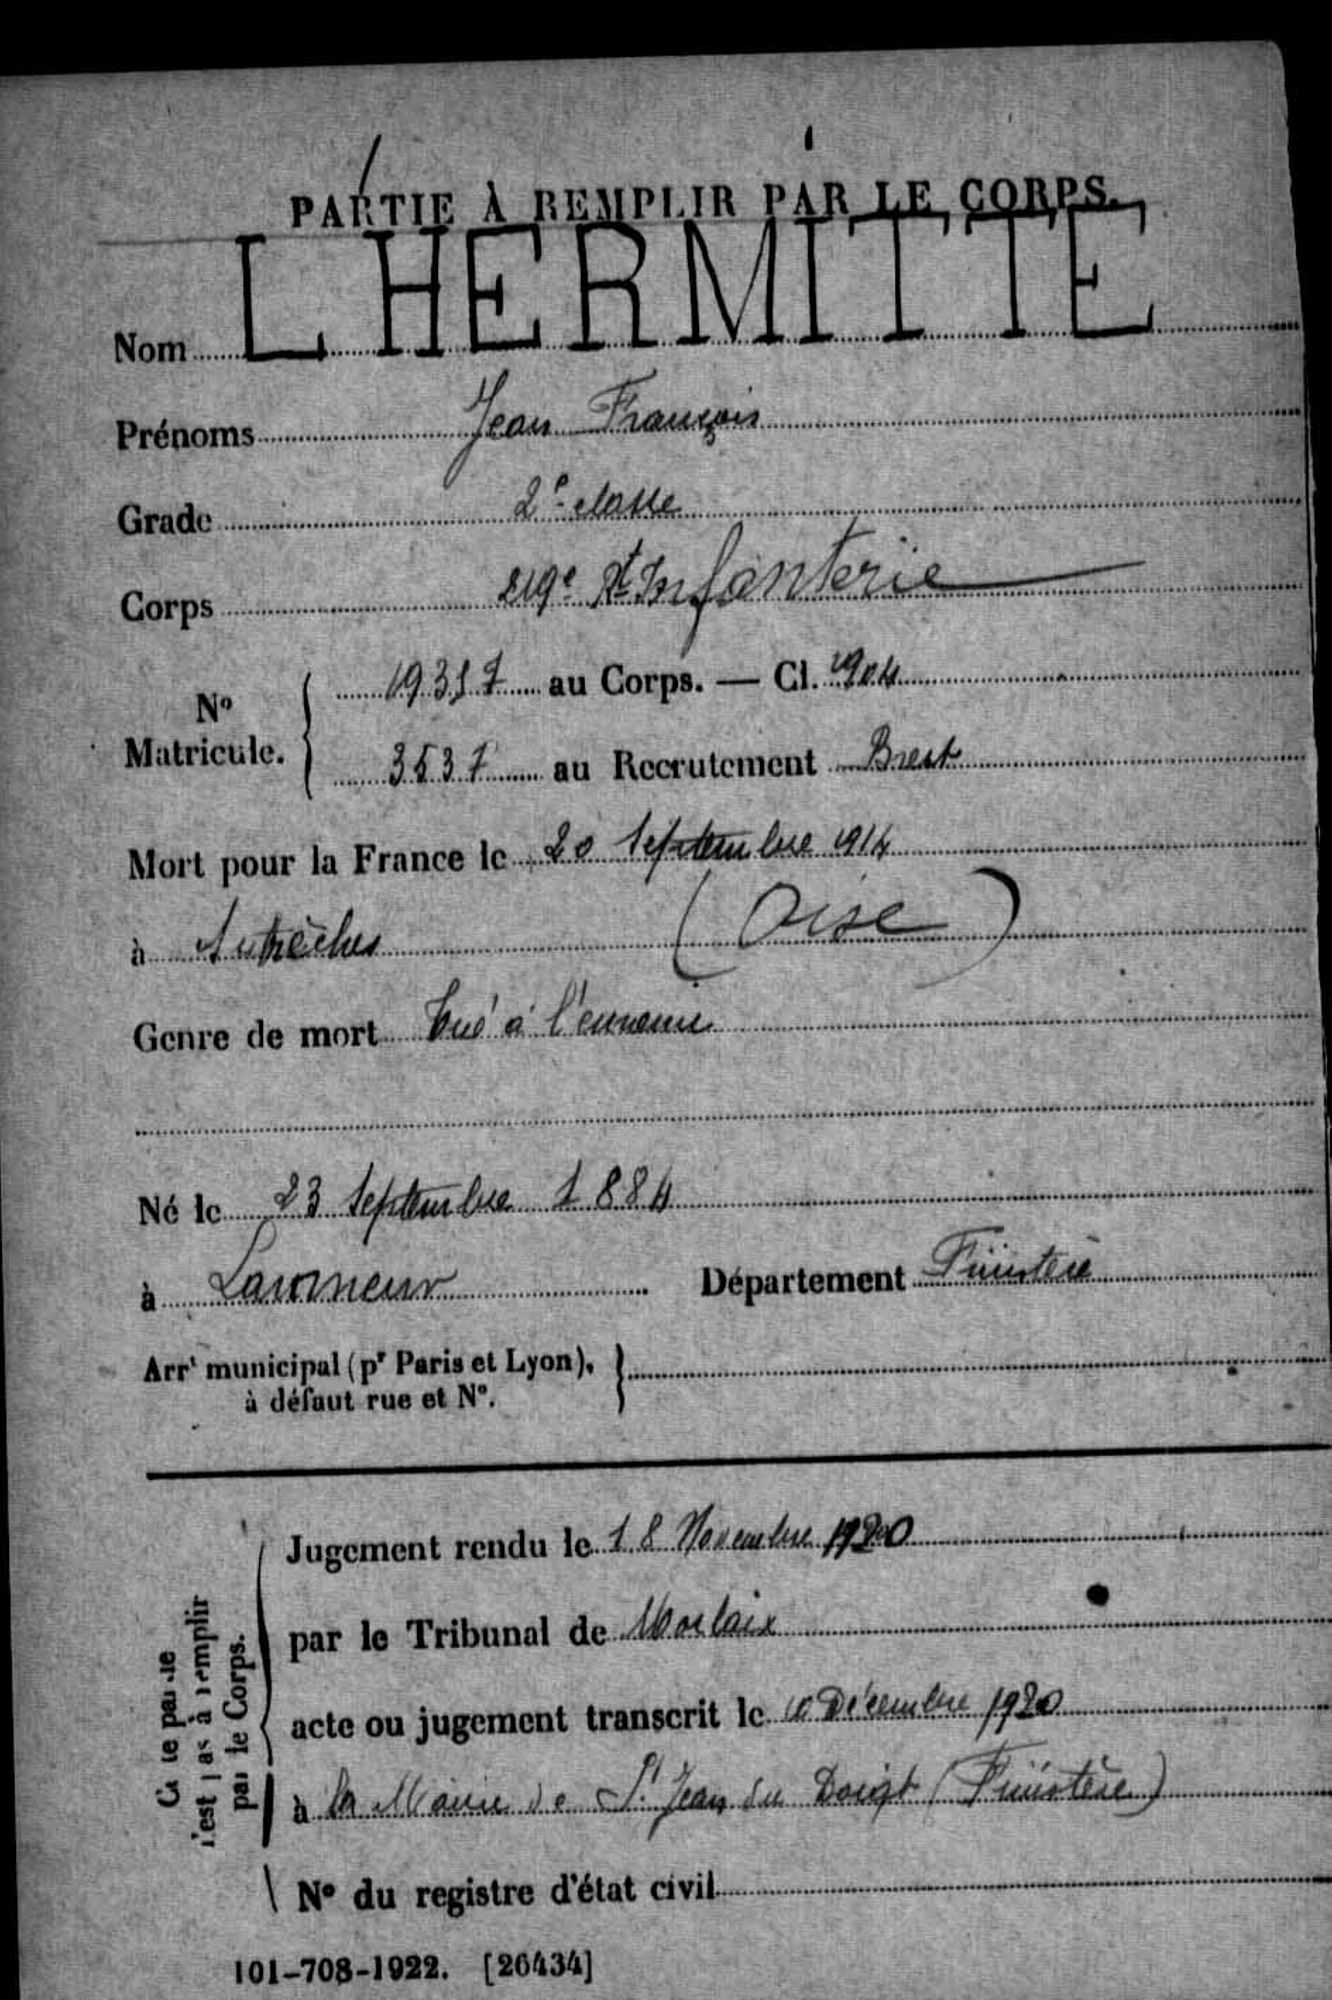 PARTIE À REMPLIR PAR LE CORPS.
Nom L HERMITTE
Prénoms Jean François
Grade 2e classe
Corps 219e Rt Infanterie
No Matricule. { 19357 au Corps. — Cl. 1904
3537 au Recrutement Brest
Mort pour la France le 20 Septembre 1914
à Autrèches (Oise)
Genre de mort Tué à l'ennemi
Né le 23 Septembre 1884
à Lanmeur Département Finistère
Arrt municipal (pr Paris et Lyon), }
à défaut rue et No.
Cette partie n'est pas à remplir par le Corps.
Jugement rendu le 18 Novembre 1920
par le Tribunal de Morlaix
acte ou jugement transcrit le 10 Décembre 1920
à la Mairie de St Jean du Doigt (Finistère)
No du registre d'état civil
101-708-1922. [26434]